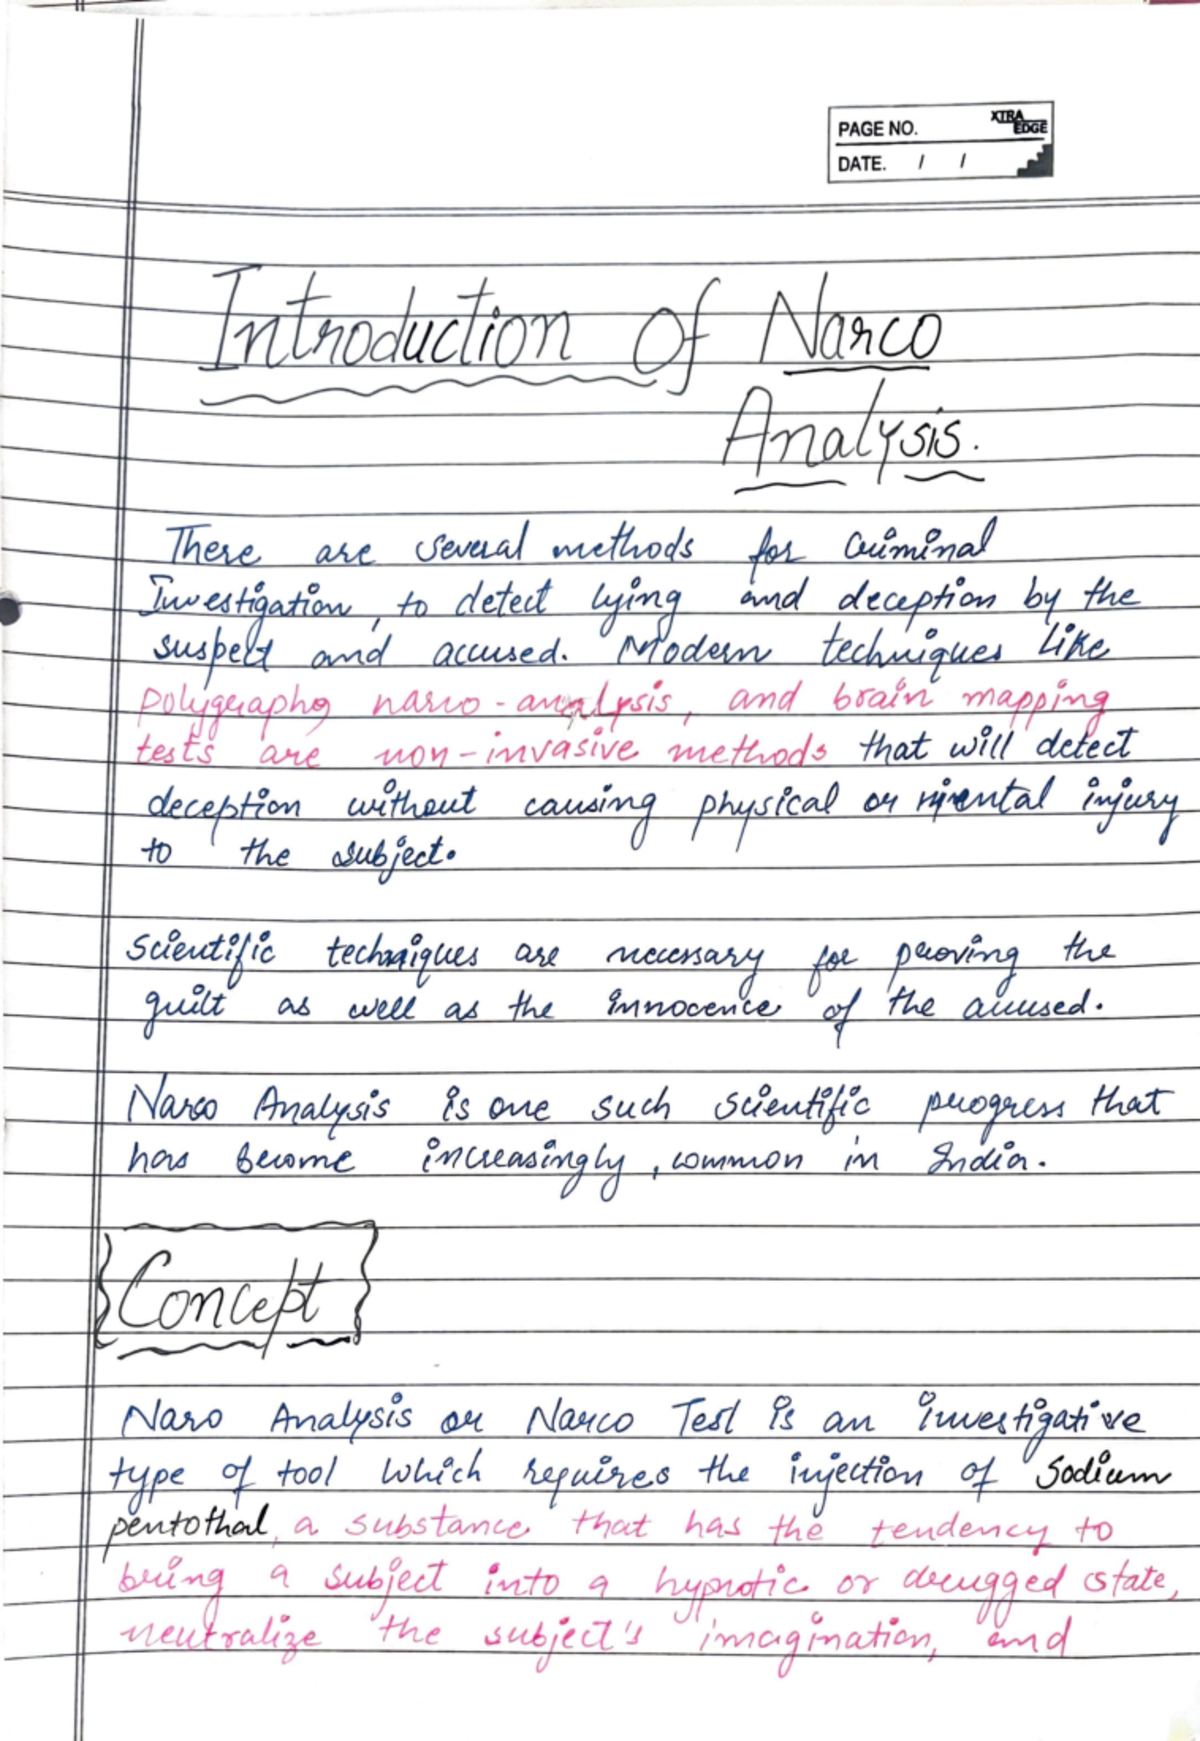 PAGE NO.
XTRA EDGE
DATE. / /
Introduction Of Narco
Analysis.
There are several methods for Criminal
Investigation, to detect lying and deception by the
suspect and accused. Modern techniques like
polygraphg narco-analysis, and brain mapping
tests are non-invasive methods that will detect
deception without causing physical or mental injury
to the subject.
Scientific techniques are necessary for proving the
guilt as well as the innocence of the accused.
Narco Analysis is one such scientific progress that
has become increasingly, common in India.
Concept
Naro Analysis or Narco Test is an investigative
type of tool which requires the injection of Sodium
pentothal, a substance that has the tendency to
bring a subject into a hypnotic or drugged state,
neutralize the subject's imagination, and